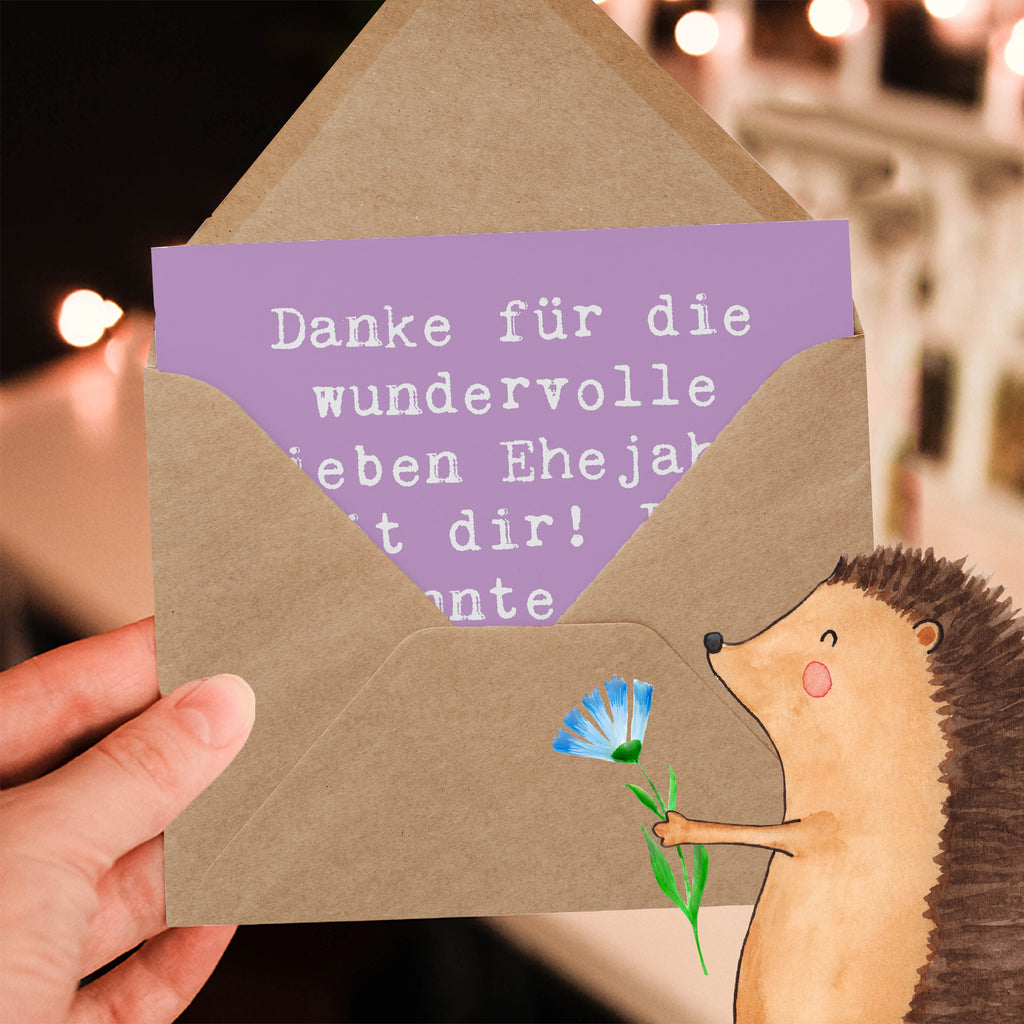 Danke für die
wundervolle
ieben Ehejah
it dir!
nte